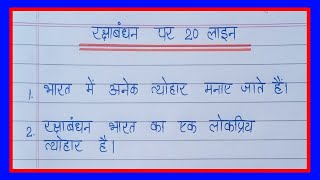 रक्षाबंधन पर 20 लाइन
1. भारत में अनेक त्योहार मनाए जाते हैं।
2. रक्षाबंधन भारत का एक लोकप्रिय
त्योहार है।